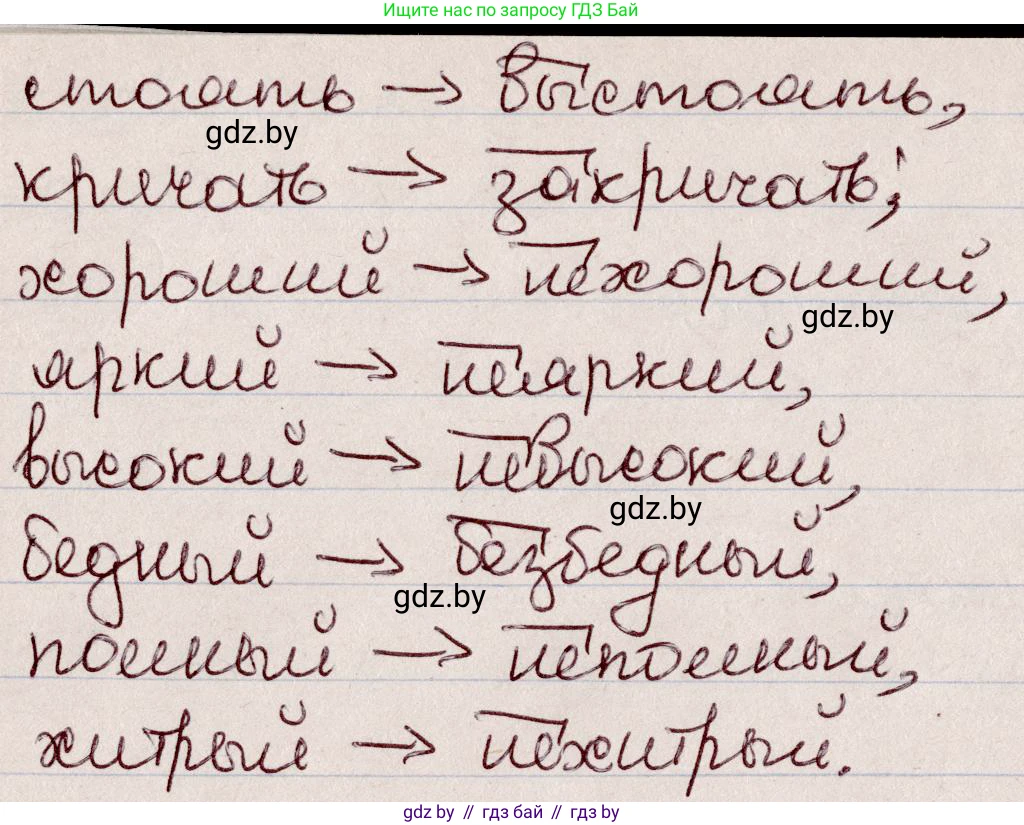 Ищите нас по запросу ГДЗ Бай
стоять → выстоять,
gdz.by
кричать → закричать;
хороший → нехороший,
gdz.by
яркий → неяркий,
высокий → невысокий,
gdz.by
бедный → безбедный,
gdz.by
полный → неполный,
хитрый → нехитрый.
gdz by // гдз бай // gdz by